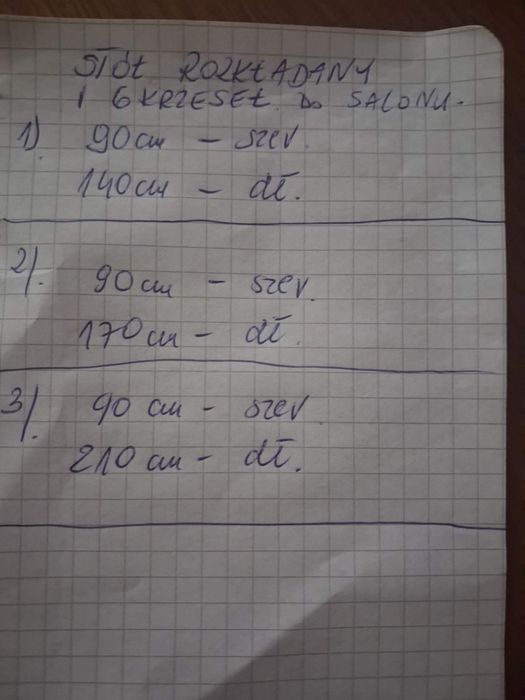 STÓŁ ROZKŁADANY
I 6 KRZESEŁ DO SALONU.
1). 90cm - szer.
140cm - dł.
2). 90cm - szer.
170cm - dł.
3). 90 cm - szer.
210 cm - dł.